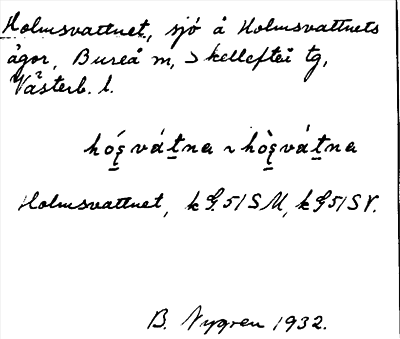 Holmsvattnet, sjö å Holmsvattnets
ägor, Bureå m, Skellefteå tg,
Västerb. l.
Holmsvattnet, k G. 51 S M, k G 51 S V.
B. Nygren 1932.